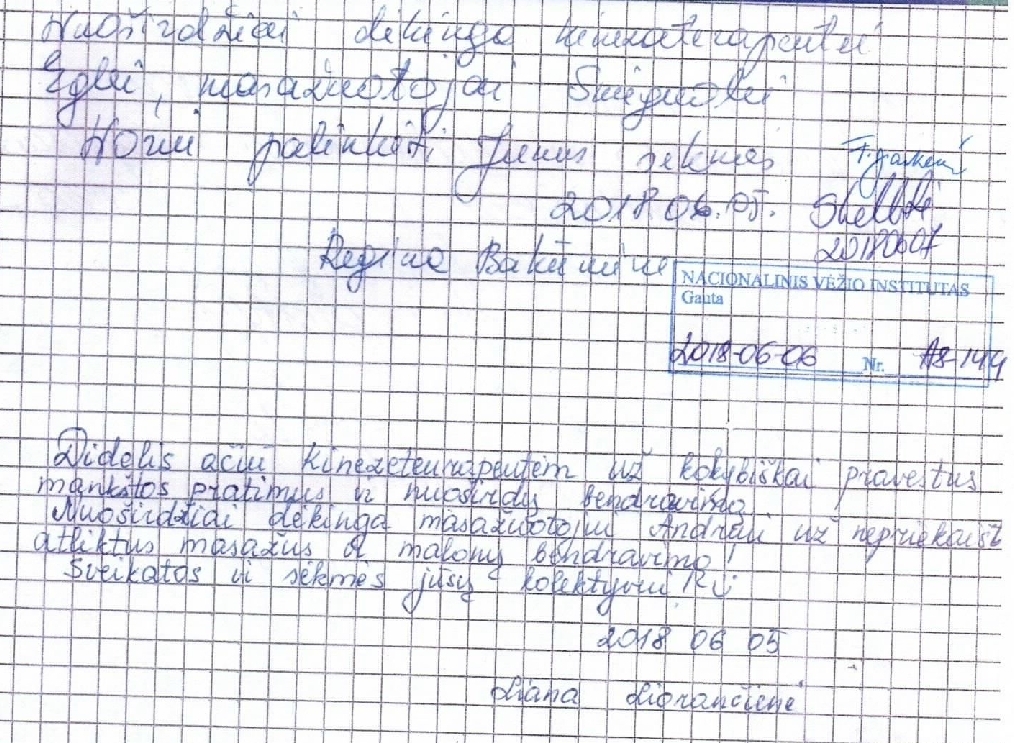 Nuoširdžiai dėkinga kinezaterapeutei
Eglei, masažuotojai Snieguolei
Noriu palinkėti Jums sekmės
2018 06.05.
20180607
Regina
NACIONALINIS VĖŽIO INSTITUTAS
Gauta
2018-06-06 Nr. A8-144
Didelis ačiū kinezeteurapeutėm už kokybiškai pravestus
mankštos pratimus ir nuoširdų bendravimą.
Nuoširdžiai dėkinga masažuotojui Andriui už nepriekaišt
atliktus masažus ir malonų bendravimą!
Sveikatos ir sėkmės jūsų kolektyvui
2018 06 05
Diana